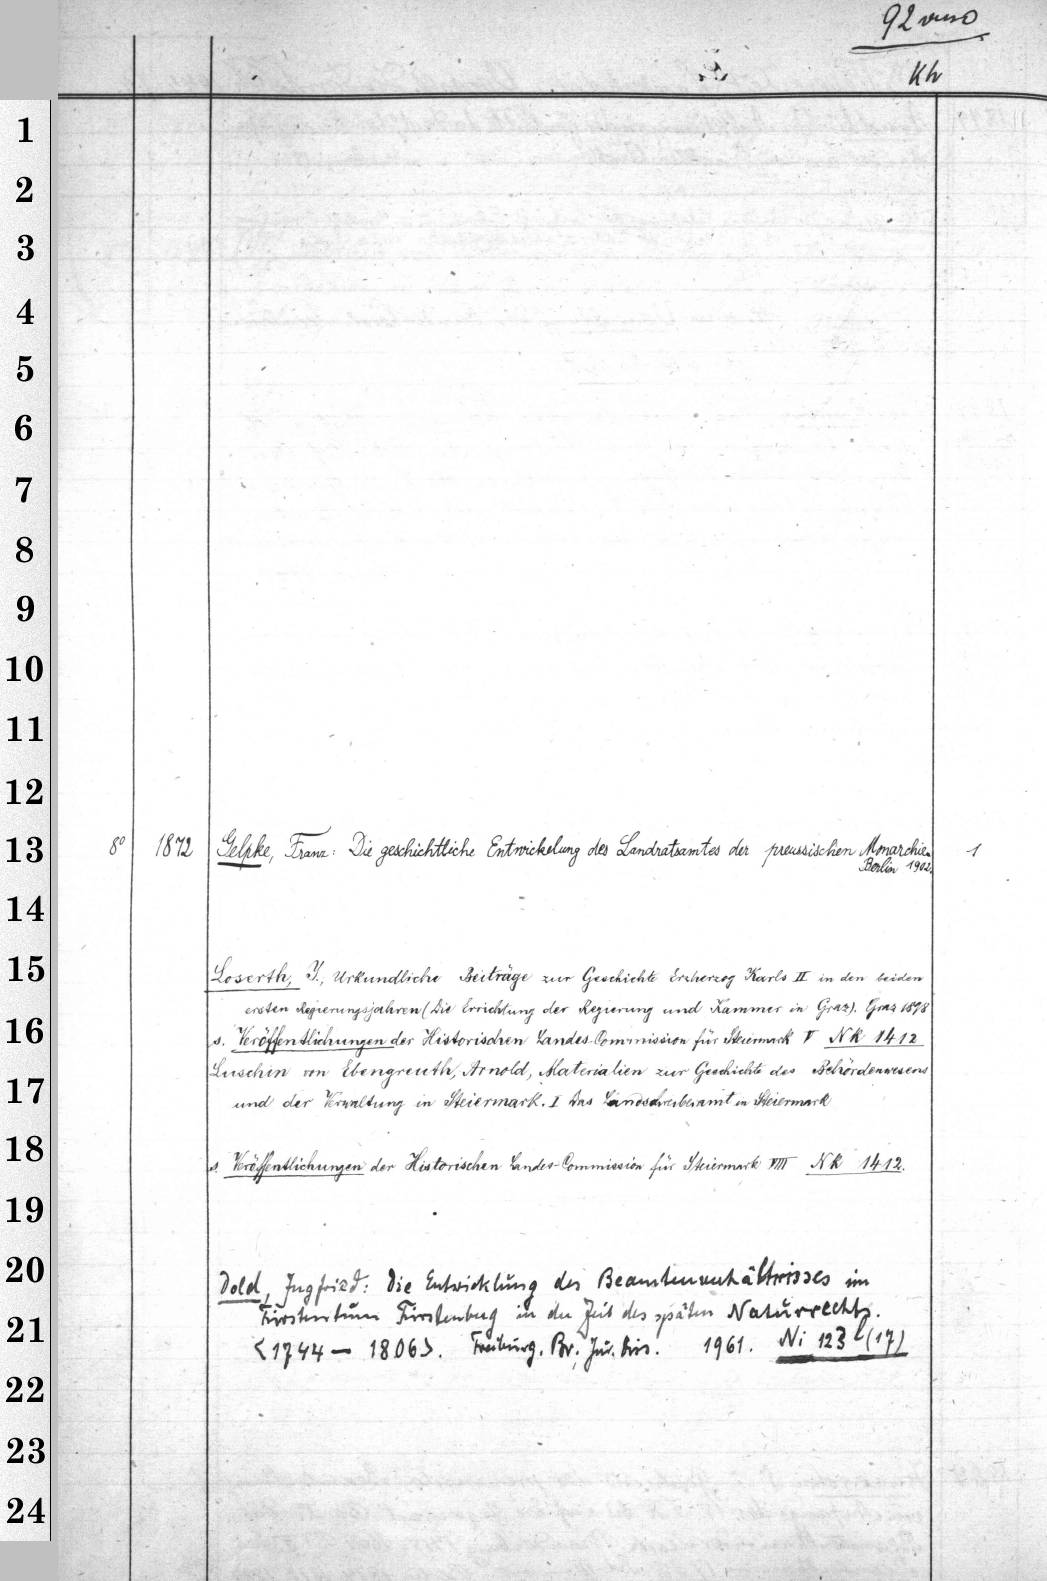 92 verso
Kh
1
2
3
4
5
6
7
8
9
10
11
12
13 8° 1872 Gelpke, Franz: Die geschichtliche Entwickelung des Landratsamtes der preussischen Monarchie. 1
Berlin 1902.
14
15 Loserth, J., Urkundliche Beiträge zur Geschichte Erzherzog Karls II in den beiden
ersten Regierungsjahren (Die Errichtung der Regierung und Kammer in Graz). Graz 1898
16 s. Veröffentlichungen der Historischen Landes-Commission für Steiermark V Nk 1412
17 Luschin von Ebengreuth, Arnold, Materialien zur Geschichte des Behördenwesens
und der Verwaltung in Steiermark. I Das Landschreiberamt in Steiermark
18 s. Veröffentlichungen der Historischen Landes-Commission für Steiermark VIII Nk 1412.
19
20 Dold, Ingfried: Die Entwicklung des Beamtenverhältnisses im
Fürstentum Fürstenberg in der Zeit des späten Naturrechts.
21 <1744 – 1806>. Freiburg, Br., Jur. Diss. 1961. Ni 123 l (17)
22
23
24